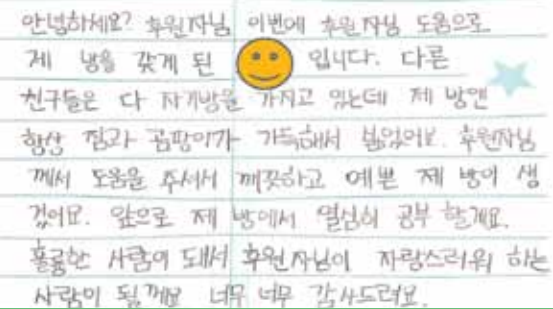 안녕하세요? 후원자님 이번에 후원자님 도움으로
제 방을 갖게 된 입니다. 다른
친구들은 다 자기방을 가지고 있는데 제 방엔
항상 짐과 곰팡이가 가득해서 싫었어요. 후원자님
께서 도움을 주셔서 깨끗하고 예쁜 제 방이 생
겼어요. 앞으로 제 방에서 열심히 공부 할게요.
훌륭한 사람이 돼서 후원자님이 자랑스러워 하는
사람이 될께요 너무 너무 감사드려요.